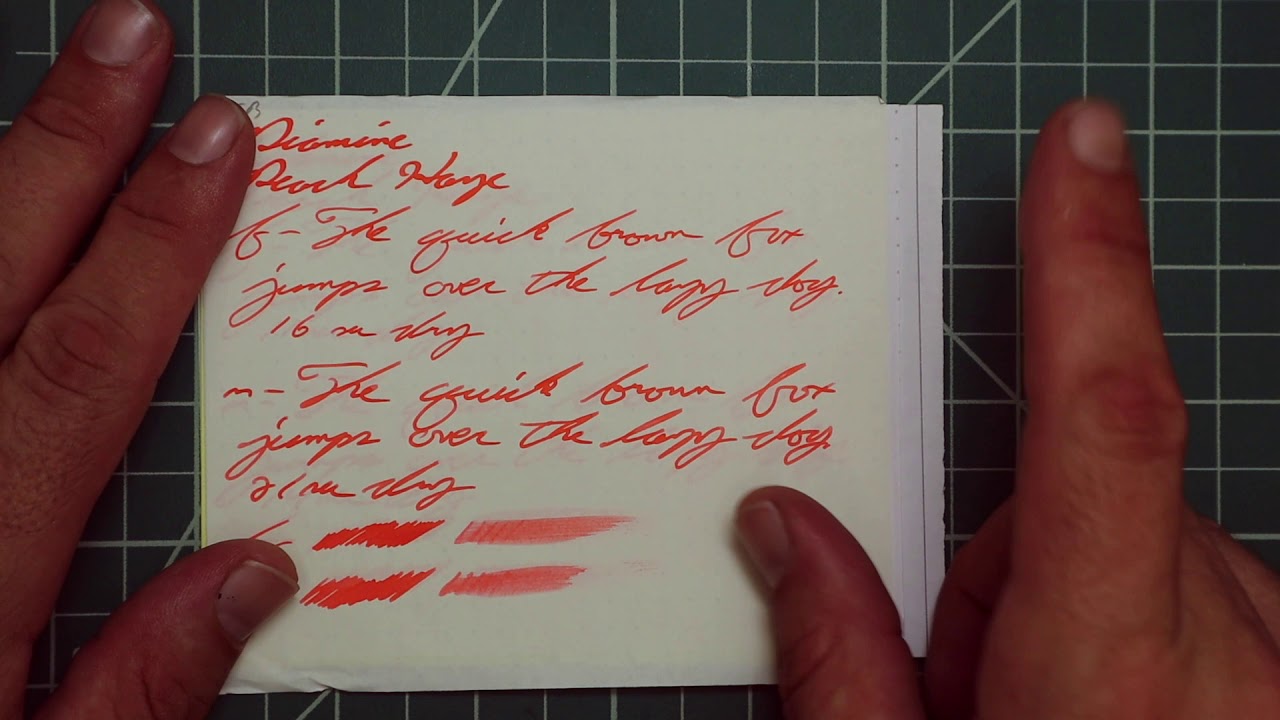 Diamine
Peach Haze
f - The quick brown fox
jumps over the lazy dog.
16 sec dry
m - The quick brown fox
jumps over the lazy dog.
21 sec dry